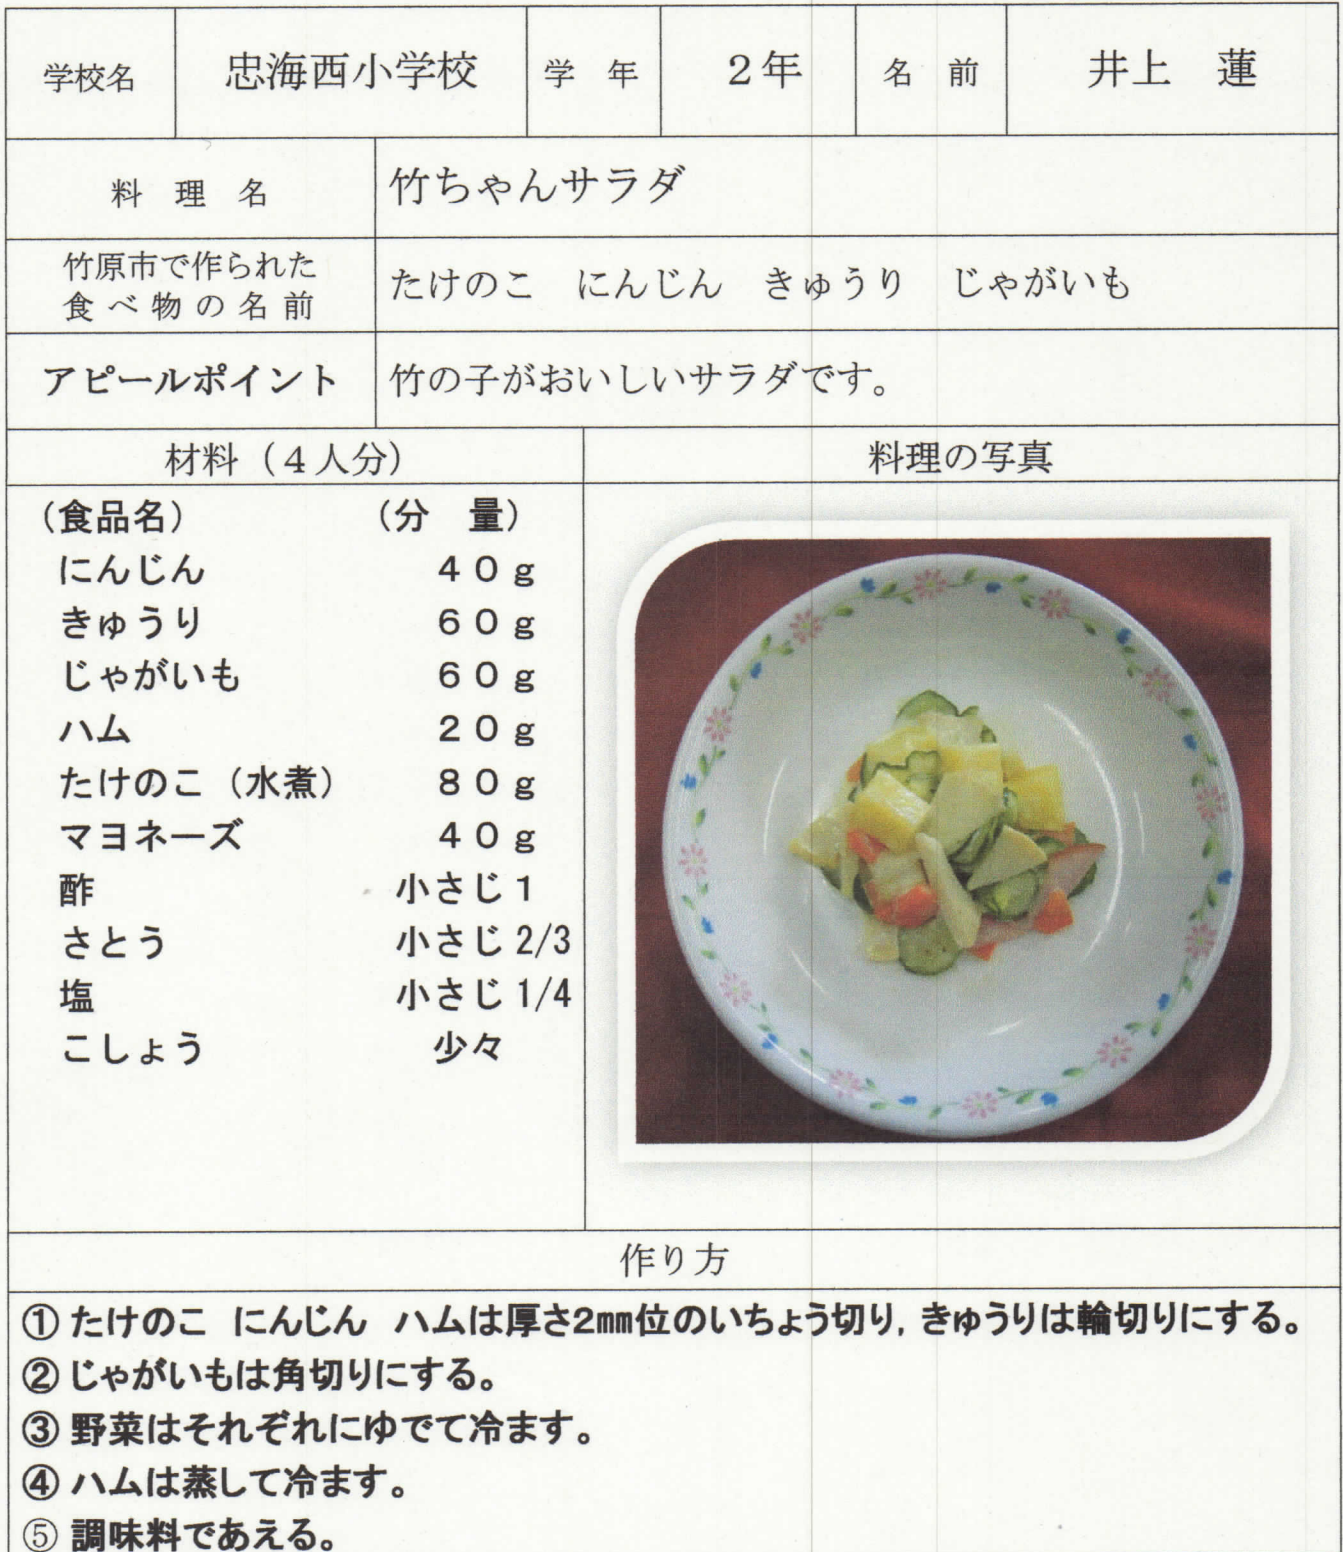 学校名 忠海西小学校 学 年 2年 名 前 井上 蓮
料 理 名 竹ちゃんサラダ
竹原市で作られた
食べ物の名前
たけのこ にんじん きゅうり じゃがいも
アピールポイント 竹の子がおいしいサラダです。
材料（4人分） 料理の写真
（食品名） （分 量）
にんじん 40g
きゅうり 60g
じゃがいも 60g
ハム 20g
たけのこ（水煮） 80g
マヨネーズ 40g
酢 小さじ1
さとう 小さじ2/3
塩 小さじ1/4
こしょう 少々
作り方
① たけのこ にんじん ハムは厚さ2㎜位のいちょう切り,きゅうりは輪切りにする。
② じゃがいもは角切りにする。
③ 野菜はそれぞれにゆでて冷ます。
④ ハムは蒸して冷ます。
⑤ 調味料であえる。